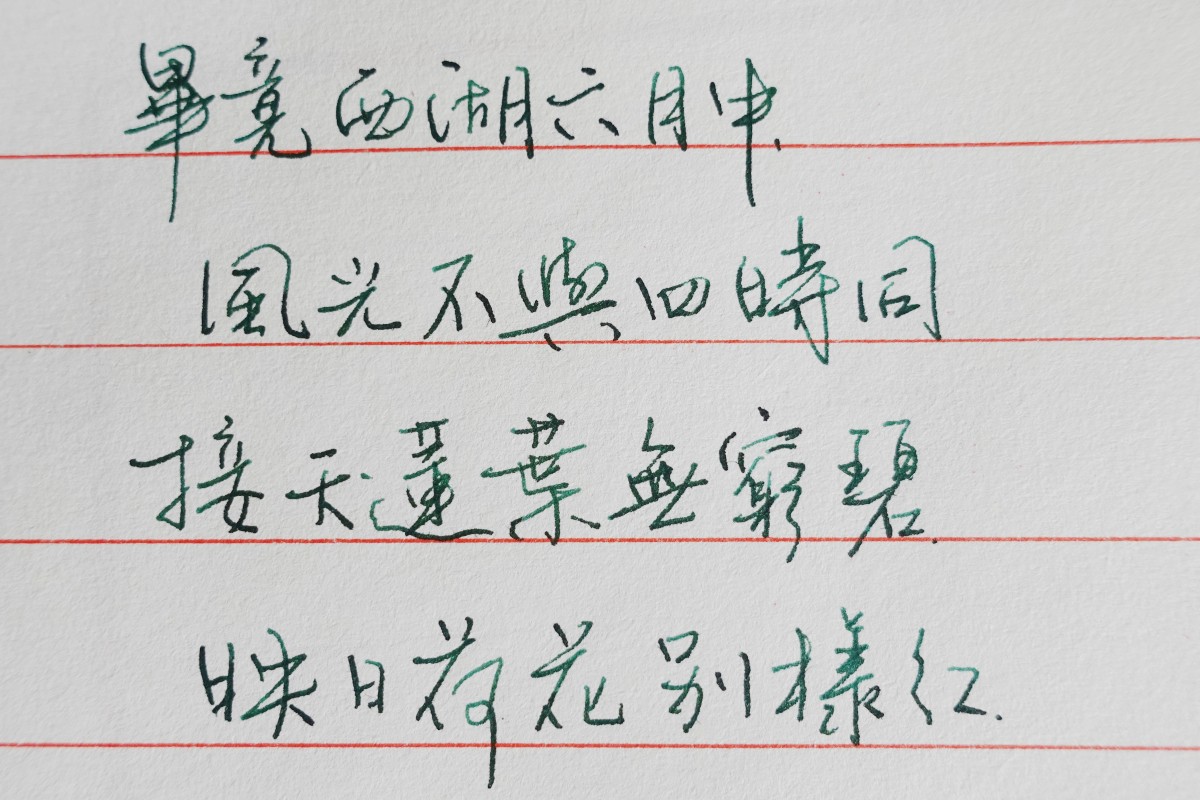 畢竟西湖六月中.
風光不與四時同
接天蓮葉無窮碧.
映日荷花别樣紅.